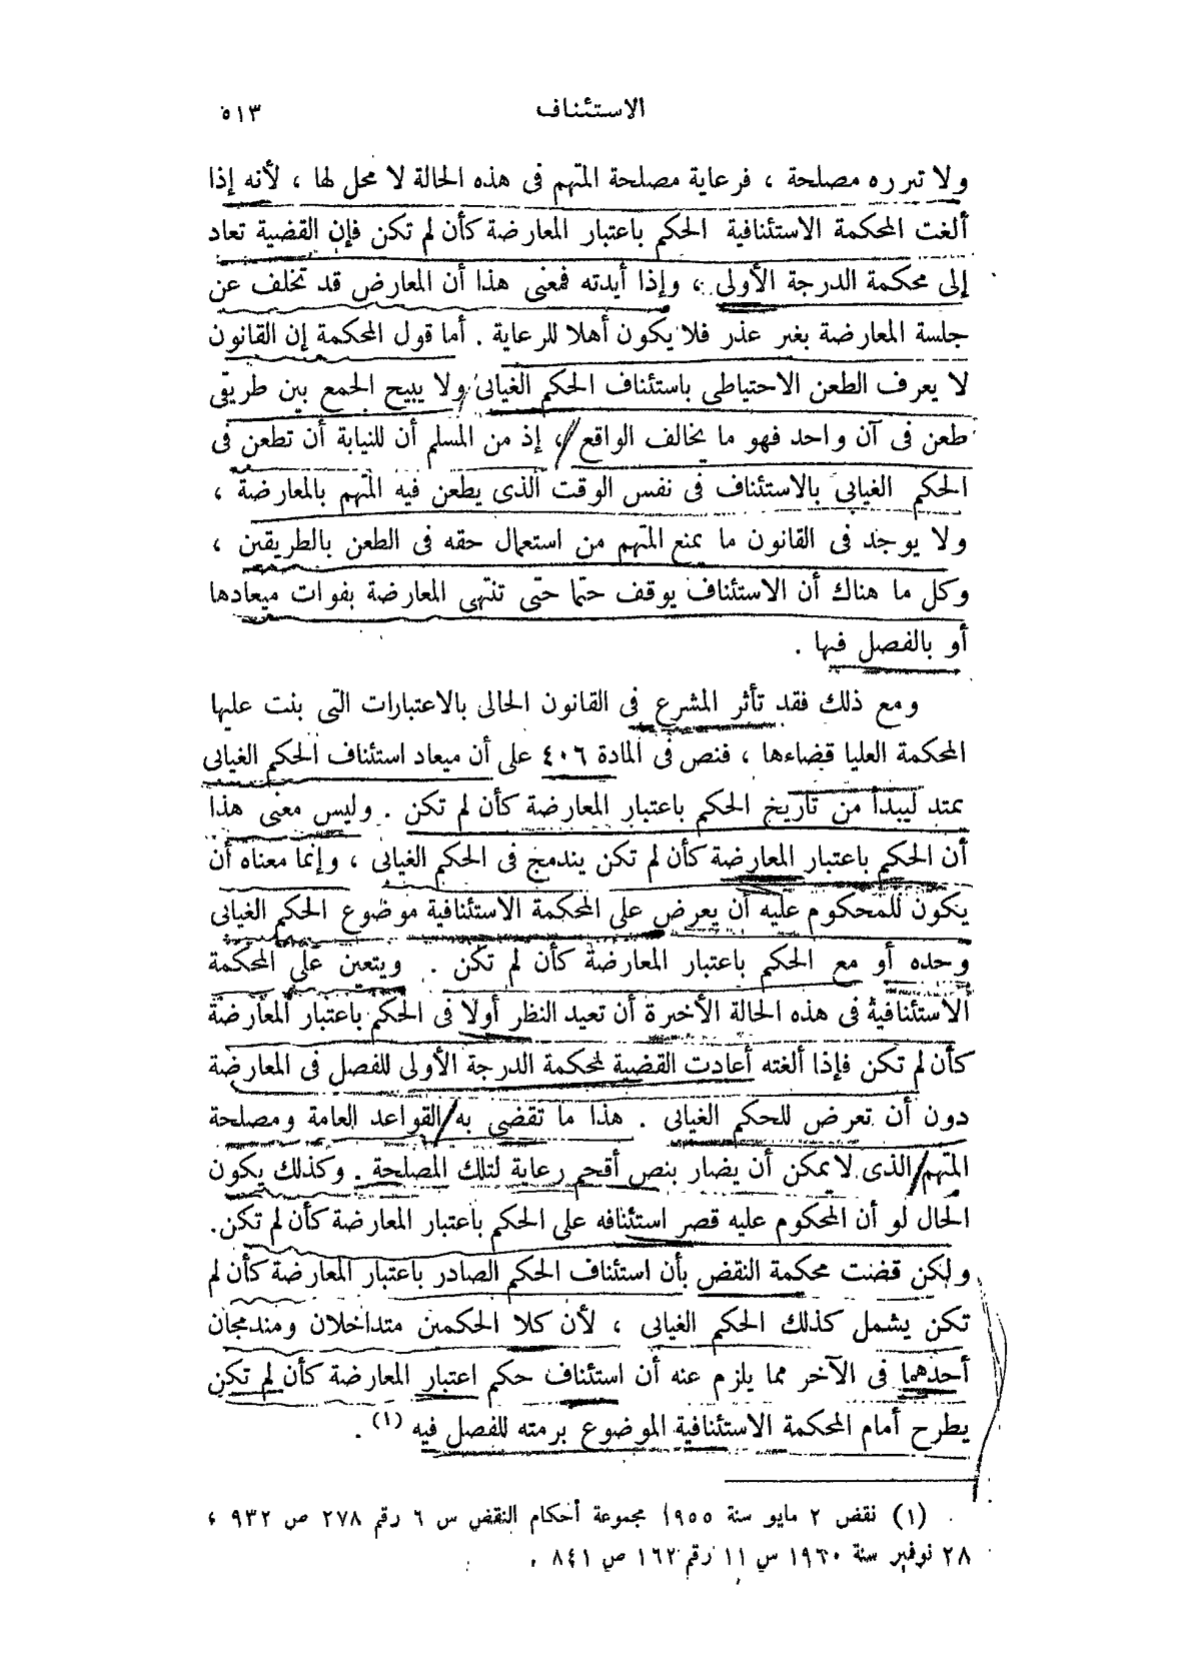 الاستئناف ٥١٣
ولا تبرره مصلحة ، فرعاية مصلحة المتهم فى هذه الحالة لا محل لها ، لأنه إذا
ألغت المحكمة الاستئنافية الحكم باعتبار المعارضة كأن لم تكن فإن القضية تعاد
إلى محكمة الدرجة الأولى ، وإذا أيدته فمعنى هذا أن المعارض قد تخلف عن
جلسة المعارضة بغير عذر فلا يكون أهلا للرعاية . أما قول المحكمة إن القانون
لا يعرف الطعن الاحتياطى باستئناف الحكم الغيابى ولا يبيح الجمع بين طريقى
طعن فى آن واحد فهو ما يخالف الواقع ، إذ من المسلم أن للنيابة أن تطعن فى
الحكم الغيابى بالاستئناف فى نفس الوقت الذى يطعن فيه المتهم بالمعارضة ،
ولا يوجد فى القانون ما يمنع المتهم من استعمال حقه فى الطعن بالطريقين ،
وكل ما هناك أن الاستئناف يوقف حتما حتى تنتهى المعارضة بفوات ميعادها
أو بالفصل فيها .
ومع ذلك فقد تأثر المشرع فى القانون الحالى بالاعتبارات التى بنت عليها
المحكمة العليا قضاءها ، فنص فى المادة ٤٠٦ على أن ميعاد استئناف الحكم الغيابى
يمتد ليبدأ من تاريخ الحكم باعتبار المعارضة كأن لم تكن . وليس معنى هذا
أن الحكم باعتبار المعارضة كأن لم تكن يندمج فى الحكم الغيابى ، وإنما معناه أن
يكون للمحكوم عليه أن يعرض على المحكمة الاستئنافية موضوع الحكم الغيابى
وحده أو مع الحكم باعتبار المعارضة كأن لم تكن . ويتعين على المحكمة
الاستئنافية فى هذه الحالة الأخيرة أن تعيد النظر أولا فى الحكم باعتبار المعارضة
كأن لم تكن فإذا ألغته أعادت القضية لمحكمة الدرجة الأولى للفصل فى المعارضة
دون أن تعرض للحكم الغيابى . هذا ما تقضى به القواعد العامة ومصلحة
المتهم الذى لا يمكن أن يضار بنص أقحم رعاية لتلك المصلحة . وكذلك يكون
الحال لو أن المحكوم عليه قصر استئنافه على الحكم باعتبار المعارضة كأن لم تكن .
ولكن قضت محكمة النقض بأن استئناف الحكم الصادر باعتبار المعارضة كأن لم
تكن يشمل كذلك الحكم الغيابى ، لأن كلا الحكمين متداخلان ومندمجان
أحدهما فى الآخر مما يلزم عنه أن استئناف حكم اعتبار المعارضة كأن لم تكن
يطرح أمام المحكمة الاستئنافية الموضوع برمته للفصل فيه (١) .
(١) نقض ٢ مايو سنة ١٩٥٥ مجموعة أحكام النقض س ٦ رقم ٢٧٨ ص ٩٣٢ ،
٢٨ نوفمبر سنة ١٩٦٠ س ١١ رقم ١٦٢ ص ٨٤١ .